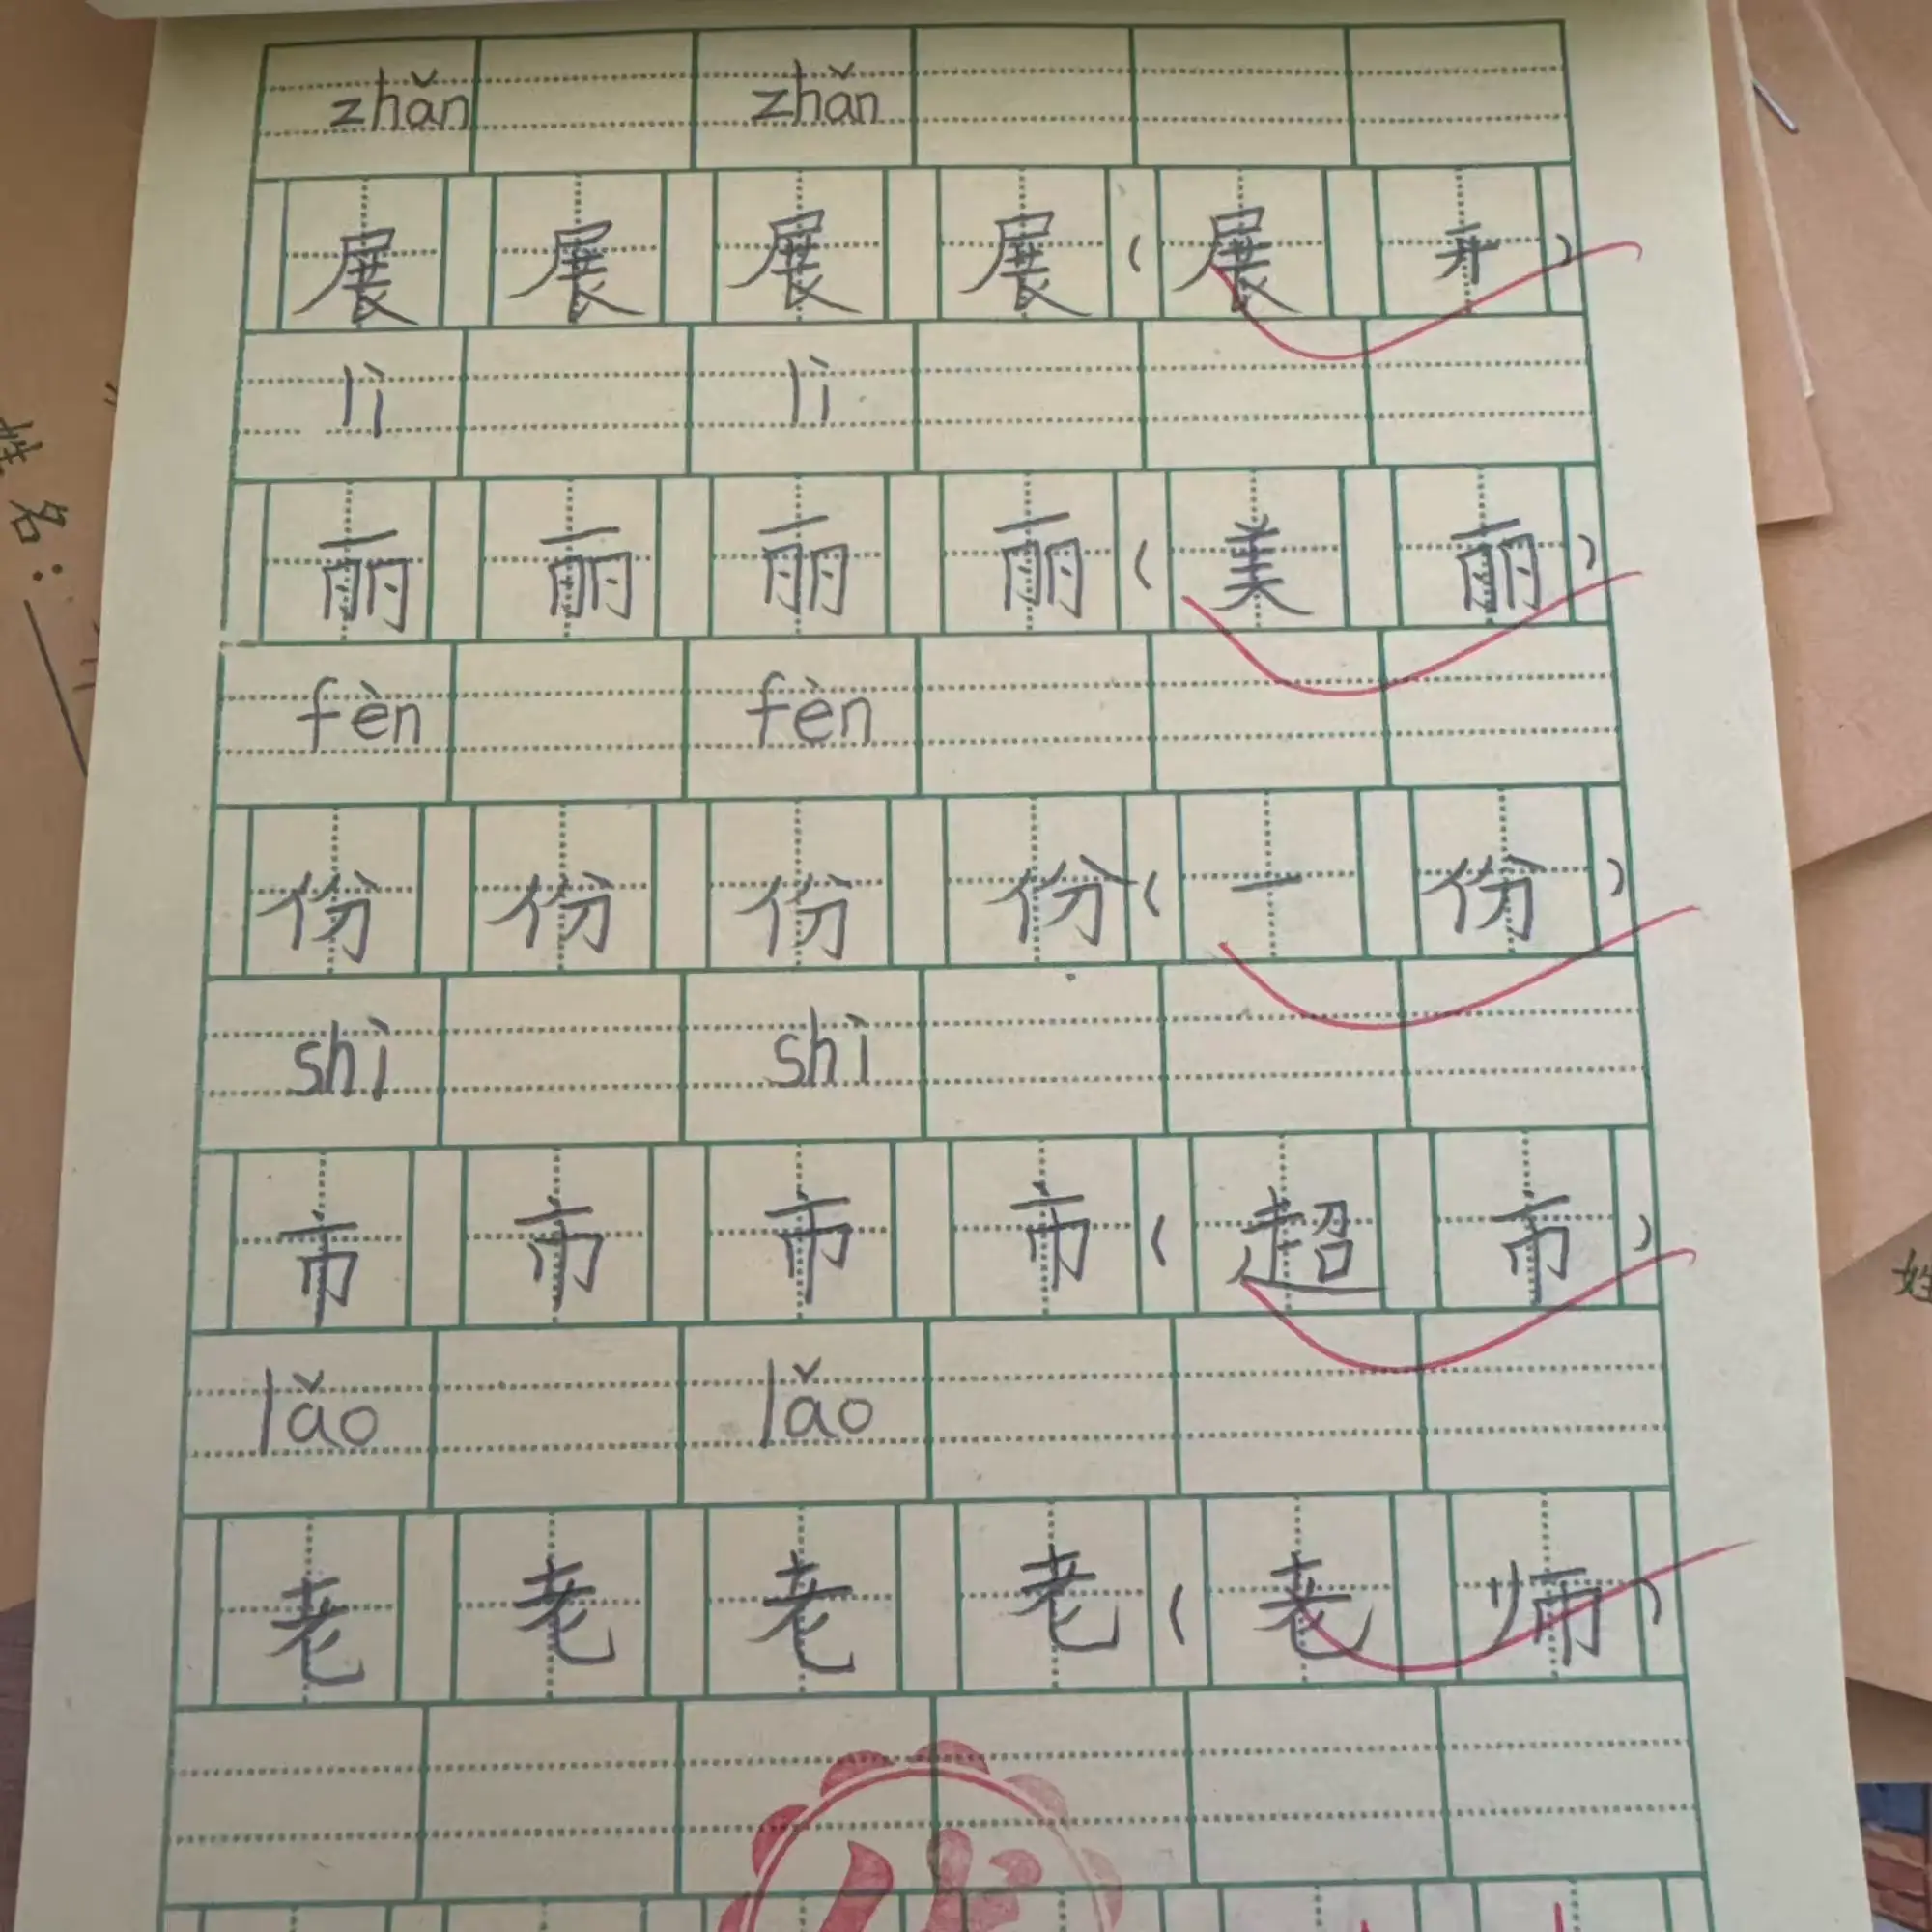 zhǎn zhǎn
展 展 展 展 ( 展 开 )
lì lì
丽 丽 丽 丽 ( 美 丽 )
fèn fèn
份 份 份 份 ( 一 份 )
shì shì
市 市 市 市 ( 超 市 )
lǎo lǎo
老 老 老 老 ( 老 师 )
姓名:
姓